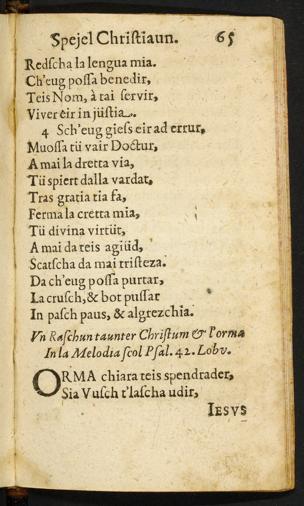 Spejel Christiaun. 65
Redscha la lengua mia.
Ch'eug possa benedir,
Teis Nom, à tai servir,
Viver eir in jüstia.
4 Sch'eug giess eir ad errur,
Muossa tü vair Doctur,
A mai la dretta via,
Tü spiert dalla vardat,
Tras gratia tia fa,
Ferma la cretta mia,
Tü divina virtüt,
A mai da teis agiüd,
Scatscha da mai tristeza.
Da ch'eug possa purtar,
La crusch, & bot pussar
In pasch paus, & algrezchia.
Vn Raschun taunter Christum & l'orma
In la Melodia scol Psal. 42. Lobv.
ORMA chiara teis spendrader,
Sia Vusch t'lascha udir,
IESVS